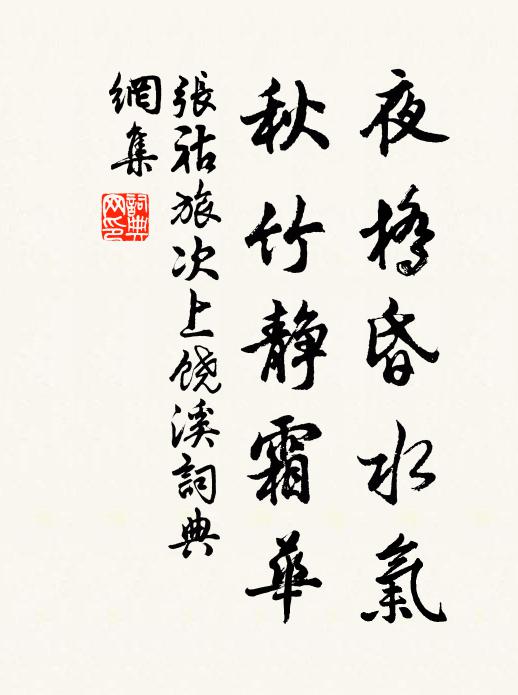 夜橋昏水氣
秋竹静霜華
張祜旅次上饒溪詞典
網集
詞典网印